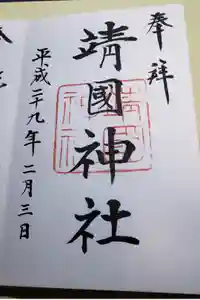 奉拝
靖國神社
平成二十九年二月三日